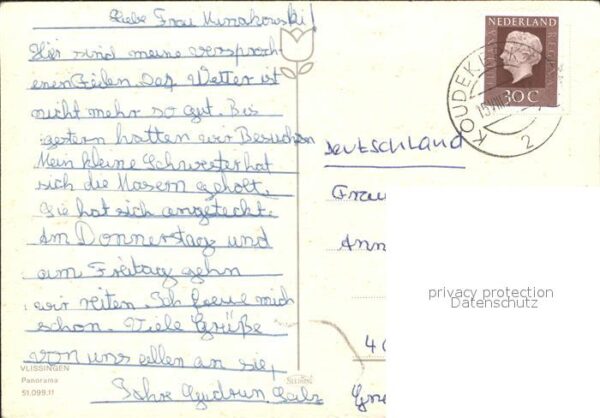 Liebe Frau Minakowski!
Hier sind meine versproch
enen Zeilen. Das Wetter ist
nicht mehr so gut. Bis
gestern hatten wir Besuch
Mein kleine Schwester hat
sich die Masern geholt.
Sie hat sich angeteckt.
Am Donnerstag und
am Freitag gehn
wir reiten. Ich freue mich
schon. Viele Grüße
von uns allen an sie,
Ihre Gudrun
VLISSINGEN
Panorama
51.099.11
NEDERLAND
JULIANA REGINA
30 C
KOUDEKE
15 VIII
2
Deutschland
Frau
Ann
privacy protection
Datenschutz
4